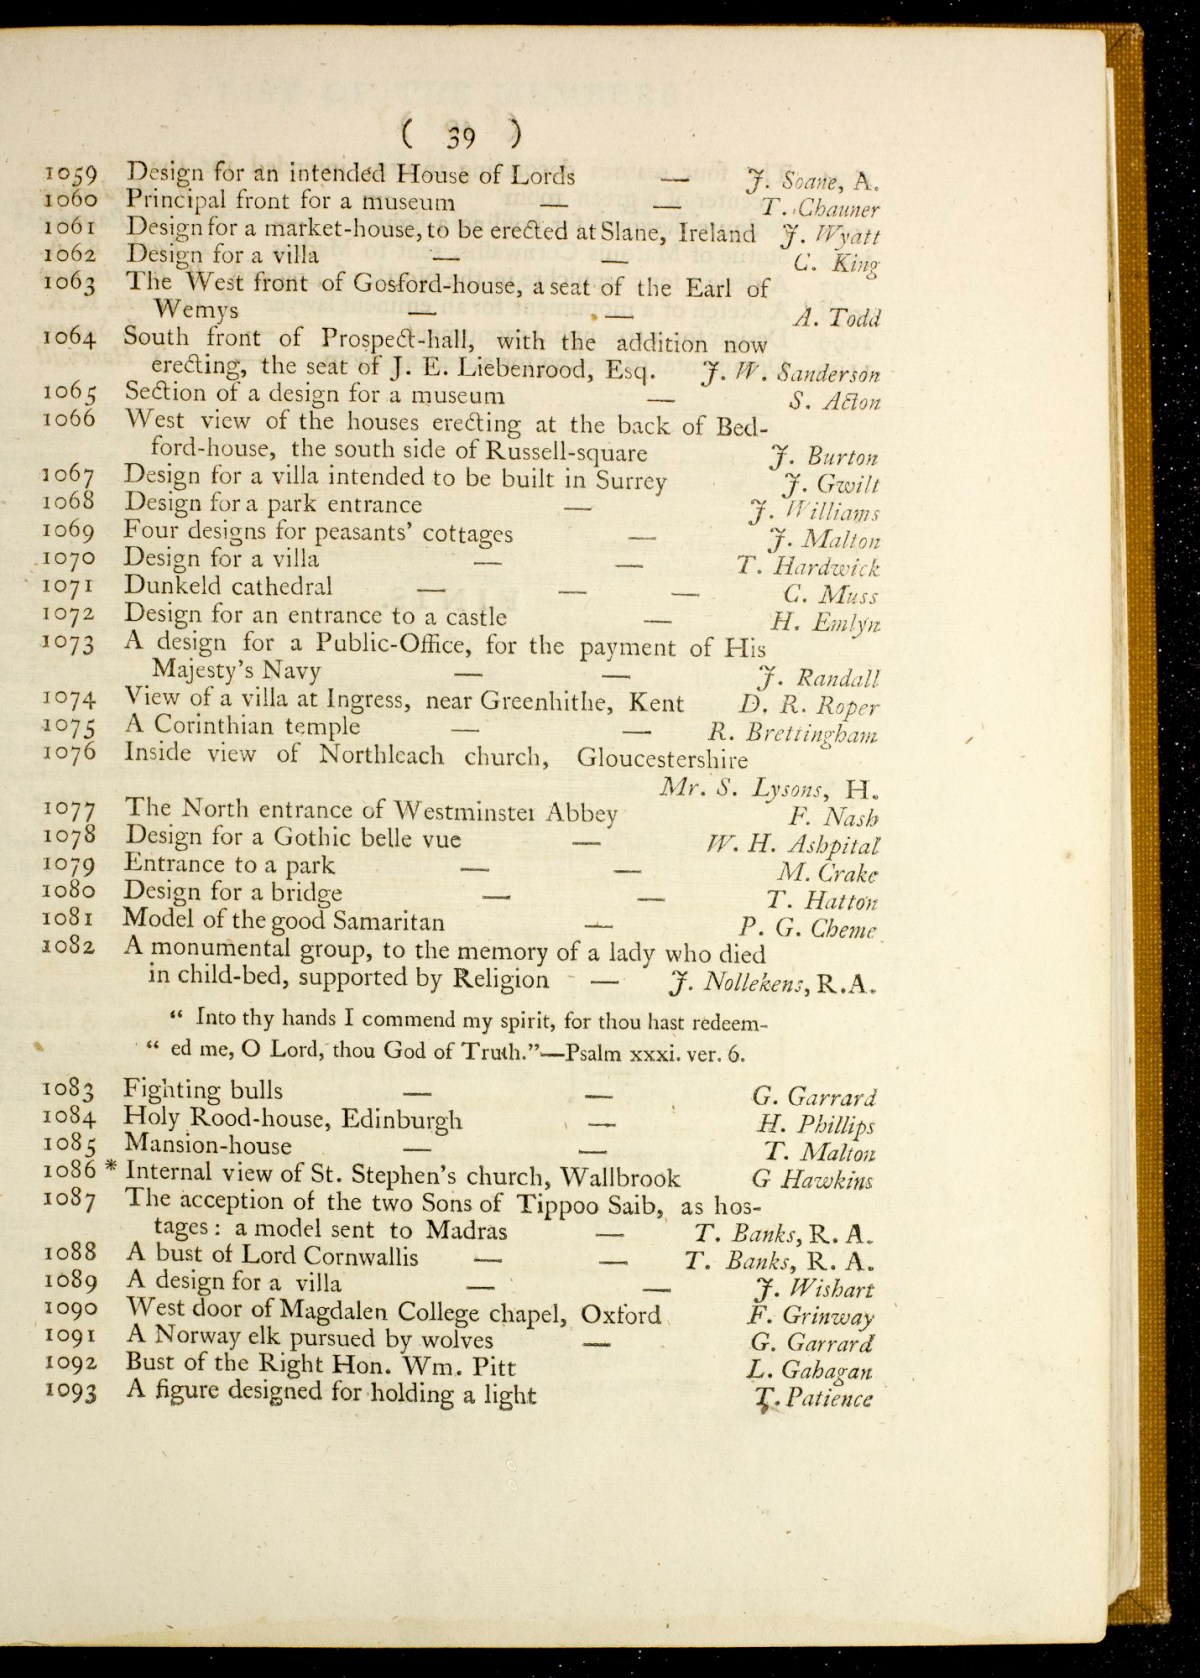 ( 39 )
1059 Design for an intended House of Lords — J. Soane, A.
1060 Principal front for a museum — — T. Chauner
1061 Design for a market-house, to be erected at Slane, Ireland J. Wyatt
1062 Design for a villa — — C. King
1063 The West front of Gosford-house, a seat of the Earl of
Wemys — — A. Todd
1064 South front of Prospect-hall, with the addition now
erecting, the seat of J. E. Liebenrood, Esq. J. W. Sanderson
1065 Section of a design for a museum — S. Acton
1066 West view of the houses erecting at the back of Bed-
ford-house, the south side of Russell-square J. Burton
1067 Design for a villa intended to be built in Surrey J. Gwilt
1068 Design for a park entrance — J. Williams
1069 Four designs for peasants' cottages — J. Malton
1070 Design for a villa — — T. Hardwick
1071 Dunkeld cathedral — — — C. Muss
1072 Design for an entrance to a castle — H. Emlyn
1073 A design for a Public-Office, for the payment of His
Majesty's Navy — — J. Randall
1074 View of a villa at Ingress, near Greenhithe, Kent D. R. Roper
1075 A Corinthian temple — — R. Brettingham
1076 Inside view of Northleach church, Gloucestershire
Mr. S. Lysons, H.
1077 The North entrance of Westminster Abbey F. Nash
1078 Design for a Gothic belle vue — W. H. Ashpital
1079 Entrance to a park — — M. Crake
1080 Design for a bridge — — T. Hatton
1081 Model of the good Samaritan — P. G. Cheme
1082 A monumental group, to the memory of a lady who died
in child-bed, supported by Religion — J. Nollekens, R.A.
" Into thy hands I commend my spirit, for thou hast redeem-
" ed me, O Lord, thou God of Truth."—Psalm xxxi. ver. 6.
1083 Fighting bulls — — G. Garrard
1084 Holy Rood-house, Edinburgh — H. Phillips
1085 Mansion-house — — T. Malton
1086 * Internal view of St. Stephen's church, Wallbrook G Hawkins
1087 The acception of the two Sons of Tippoo Saib, as hos-
tages: a model sent to Madras — T. Banks, R. A.
1088 A bust of Lord Cornwallis — — T. Banks, R. A.
1089 A design for a villa — — J. Wishart
1090 West door of Magdalen College chapel, Oxford F. Grinway
1091 A Norway elk pursued by wolves — G. Garrard
1092 Bust of the Right Hon. Wm. Pitt L. Gahagan
1093 A figure designed for holding a light T. Patience